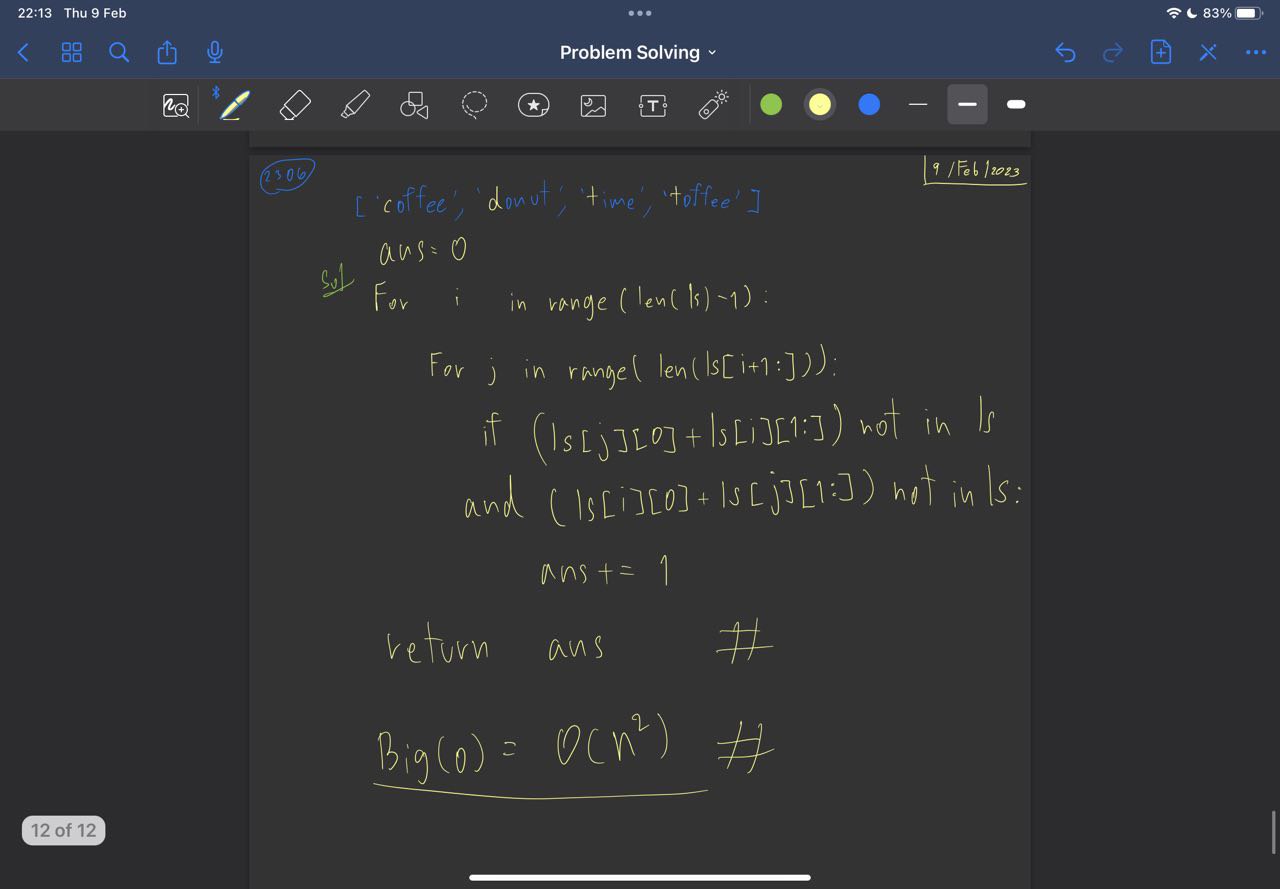 22:13 Thu 9 Feb
83%
Problem Solving
2306
9/Feb/2023
['coffee', 'donut', 'time', 'toffee']
ans = 0
Sol
For i in range (len(ls)-1):
For j in range( len(ls[i+1:])):
if (ls[j][0] + ls[i][1:]) not in ls
and (ls[i][0] + ls[j][1:]) not in ls:
ans += 1
return ans #
Big(O) = O(n²) #
12 of 12